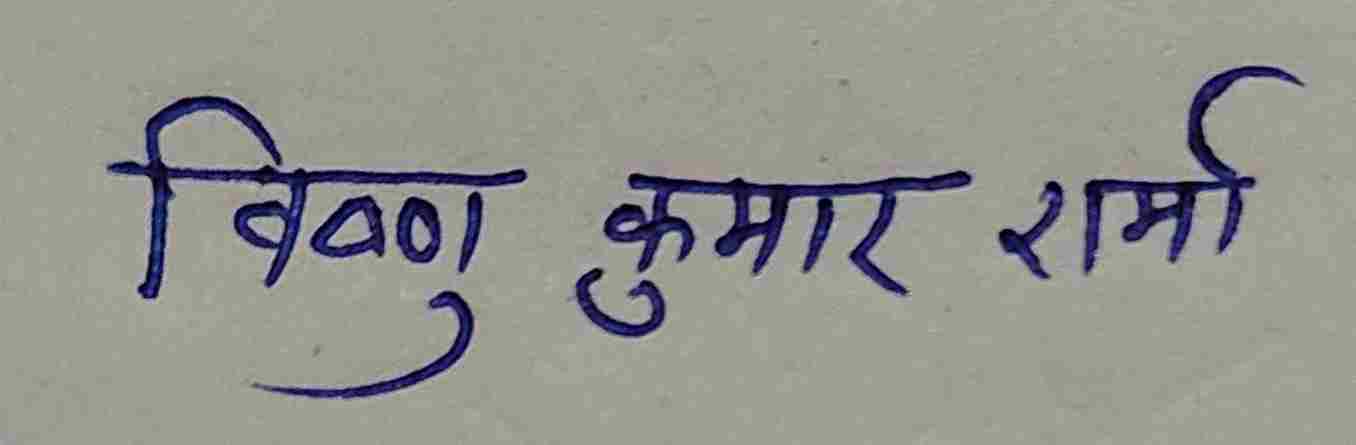 विष्णु कुमार शर्मा